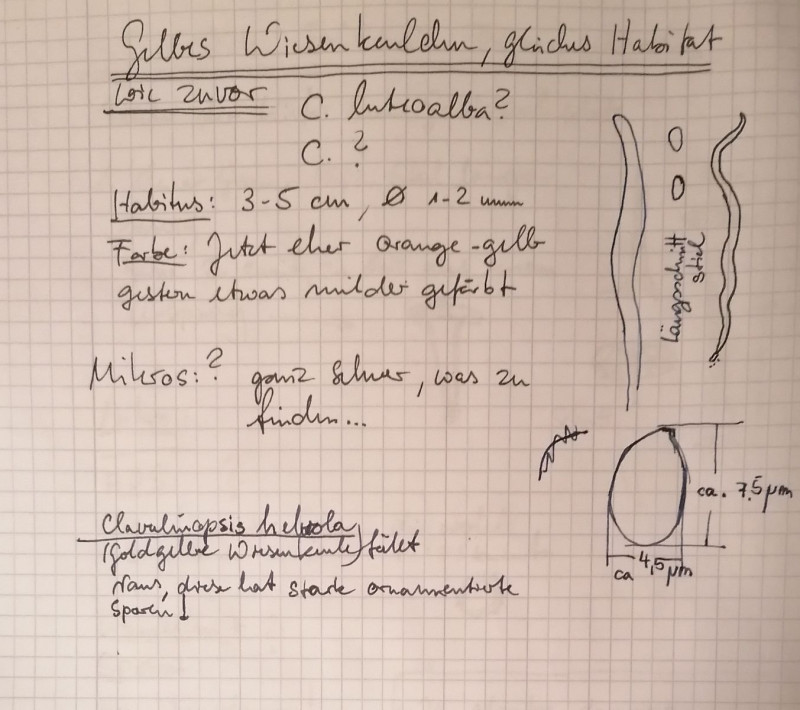 Gelbes Wiesenkeulchen, gleiches Habitat
wie zuvor
C. luteoalba?
C. ?
Habitus: 3-5 cm, Ø 1-2 mm
Farbe: Jetzt eher orange-gelb
gestern etwas milder gefärbt
Längsschnitt
Stiel
Mikros:? ganz schwer, was zu
finden...
ca. 7,5 µm
ca 4,5 µm
Clavulinopsis helvola
(Goldgelbe Wiesenkeule) fällt
raus, diese hat stark ornamentierte
Sporen!